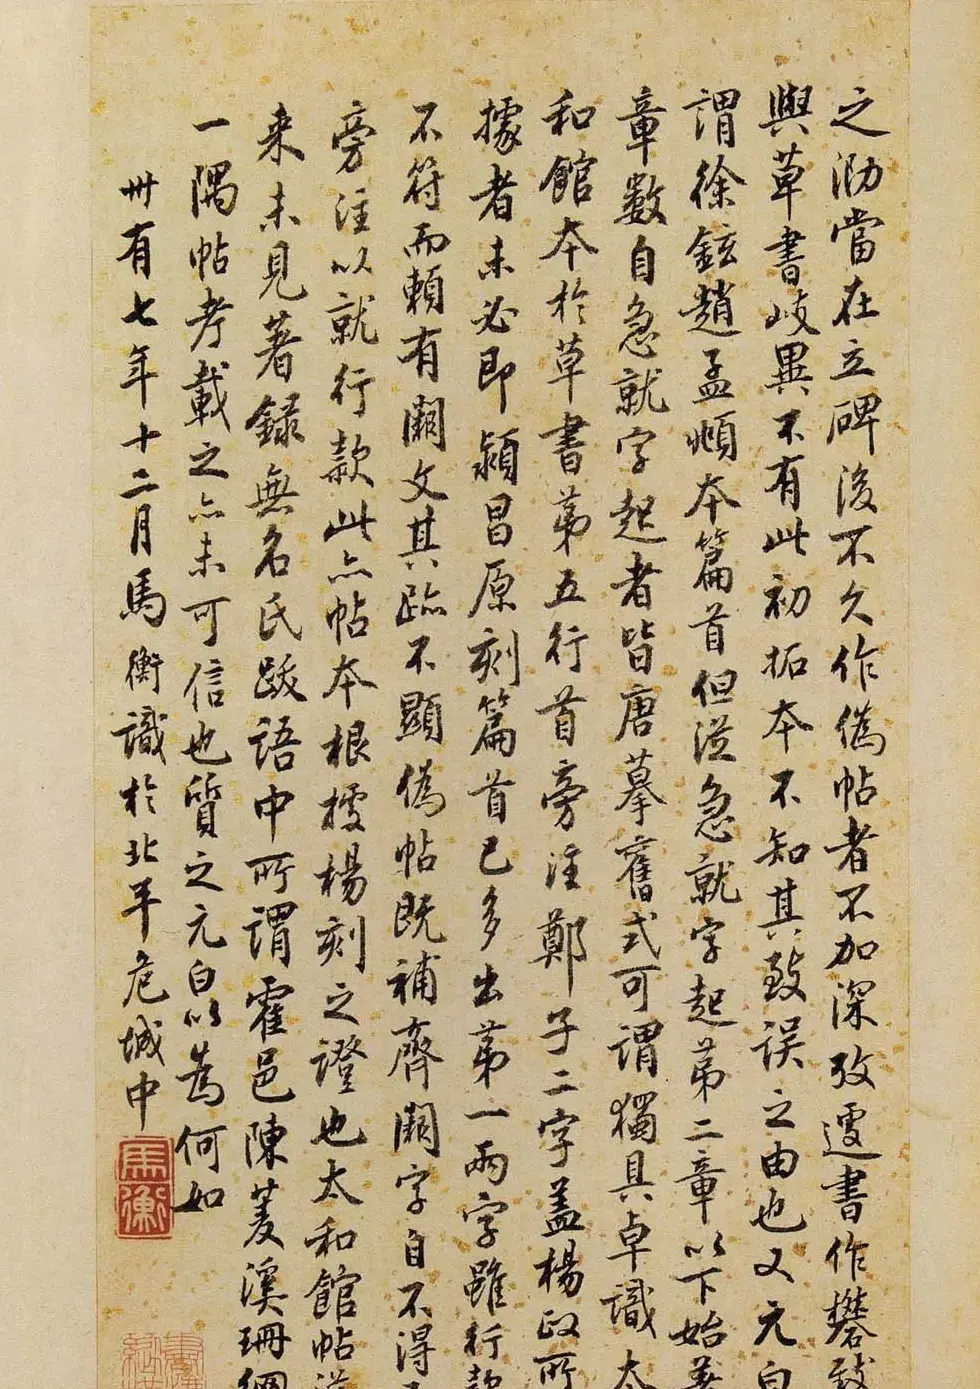 之泐當在立碑後不久作偽帖者不加深攷遽書作礬致
與草書歧異不有此初拓本不知其致誤之由也又元白
謂徐鉉趙孟頫本篇首但從急就字起第二章以下始著
章數自急就字起者皆唐摹舊式可謂獨具卓識太
和館本於草書第五行首旁注鄭子二字蓋楊政所
據者未必即潁昌原刻篇首已多出第一兩字雖行款
不符而賴有闕文其跡不顯偽帖既補齊闕字自不得
旁注以就行款此亦帖本根據楊刻之證也太和館帖從
来未見著録無名氏跋語中所謂霍邑陳菱溪珊網
一隅帖考載之亦未可信也質之元白以為何如
卅有七年十二月馬衡識於北平危城中
馬衡